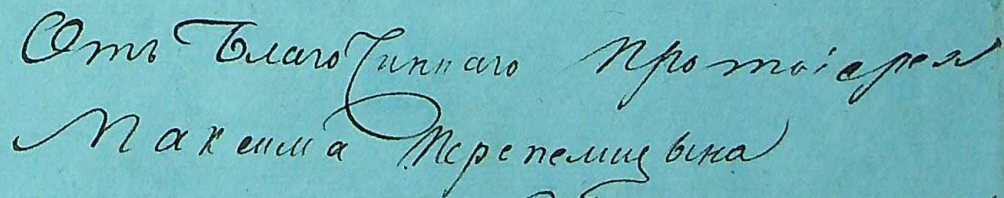 Отъ Благочиннаго Протоіерея
Максима Перепелицына